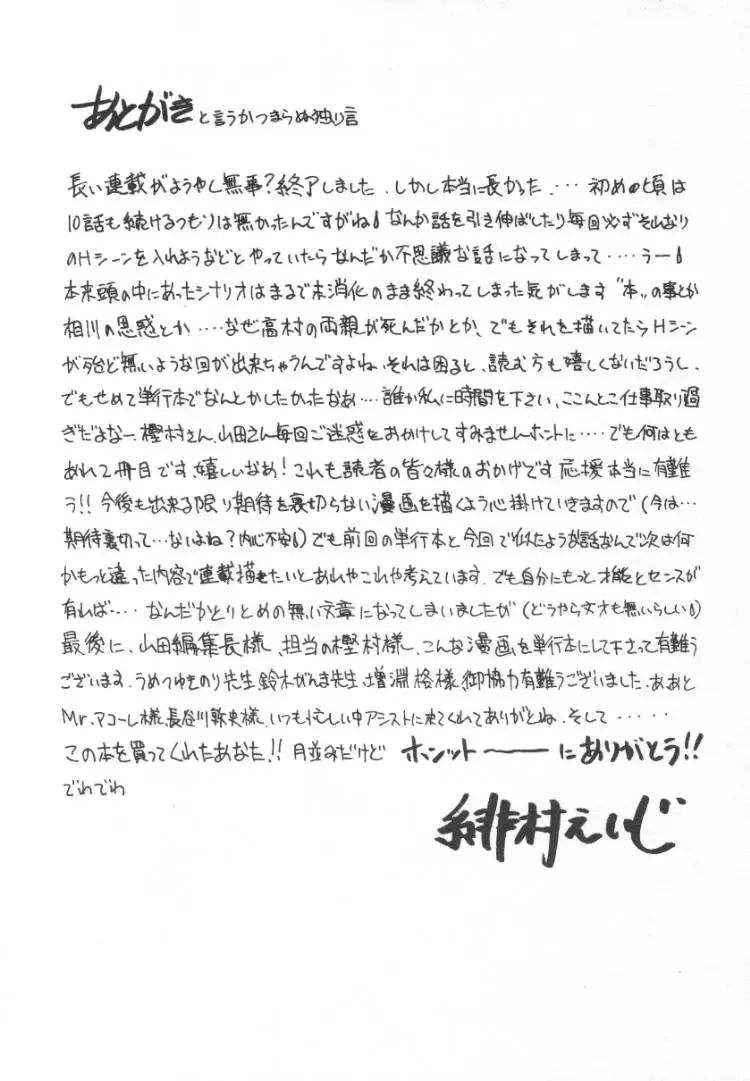 あとがきと言うかつまらぬ独り言
長い連載がようやく無事?終了しました.しかし本当に長かった.… 初めの頃は
10話も続けるつもりは無かったんですがね なんか話を引き伸ばしたり毎回必ずそれなり
のHシーンを入れようなどとやっていたらなんだか不思議な話になってしまって‥‥うー
本来頭の中にあったシナリオはまるで未消化のまま終わってしまった気がします"本"の事とか
相川の思惑とか‥‥なぜ高村の両親が死んだかとか、でもそれを描いてたらHシーン
が殆ど無いような回が出来ちゃうんですよね.それは困ると、読む方も嬉しくないだろうし.
でもせめて単行本でなんとかしたかったなあ‥‥誰か私に時間を下さい、ここんとこ仕事取り過
ぎだよなー.樫村さん、山田さん毎回ご迷惑をおかけしてすみませんホントに‥‥でも何はとも
あれ2冊目です、嬉しいなあ!これも読者の皆々様のおかげです 応援本当に有難
う!!今後も出来る限り期待を裏切らない漫画を描くよう心掛けていきますので(今は…
期待裏切って…ないよね?内心不安)でも前回の単行本と今回で似たような話なんで次は何
かもっと違った内容で連載描きたいとあれやこれや考えています.でも自分にもっと才能とセンスが
有れば‥‥ なんだかとりとめの無い文章になってしまいましたが(どうやら文才も無いらしい)
最後に、山田編集長様、担当の樫村様、こんな漫画を単行本にして下さって有難う
ございます.うめつゆきのり先生、鈴木がんま先生、増淵格様、御協力有難うございました.ああと
Mr.アコーレ様、長谷川 史様、いつも忙しい中アシストに来てくれてありがとね.そして‥‥‥
この本を買ってくれたあなた!!月並みだけど ホンット――にありがとう!!
でわでわ
緋村えいじ